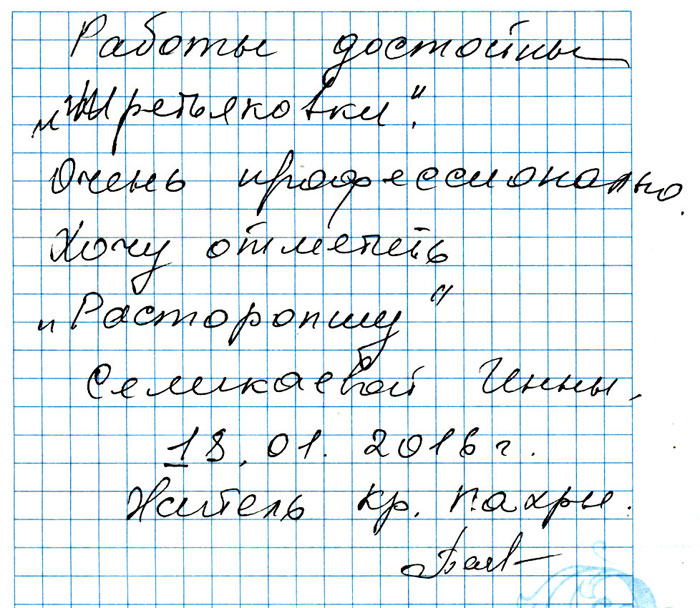 Работы достойны
„Третьяковки“.
Очень профессионально.
Хочу отметить
„Расторопшу“
Селикаевой Инны,
18.01.2016 г.
Житель кр. пахры.